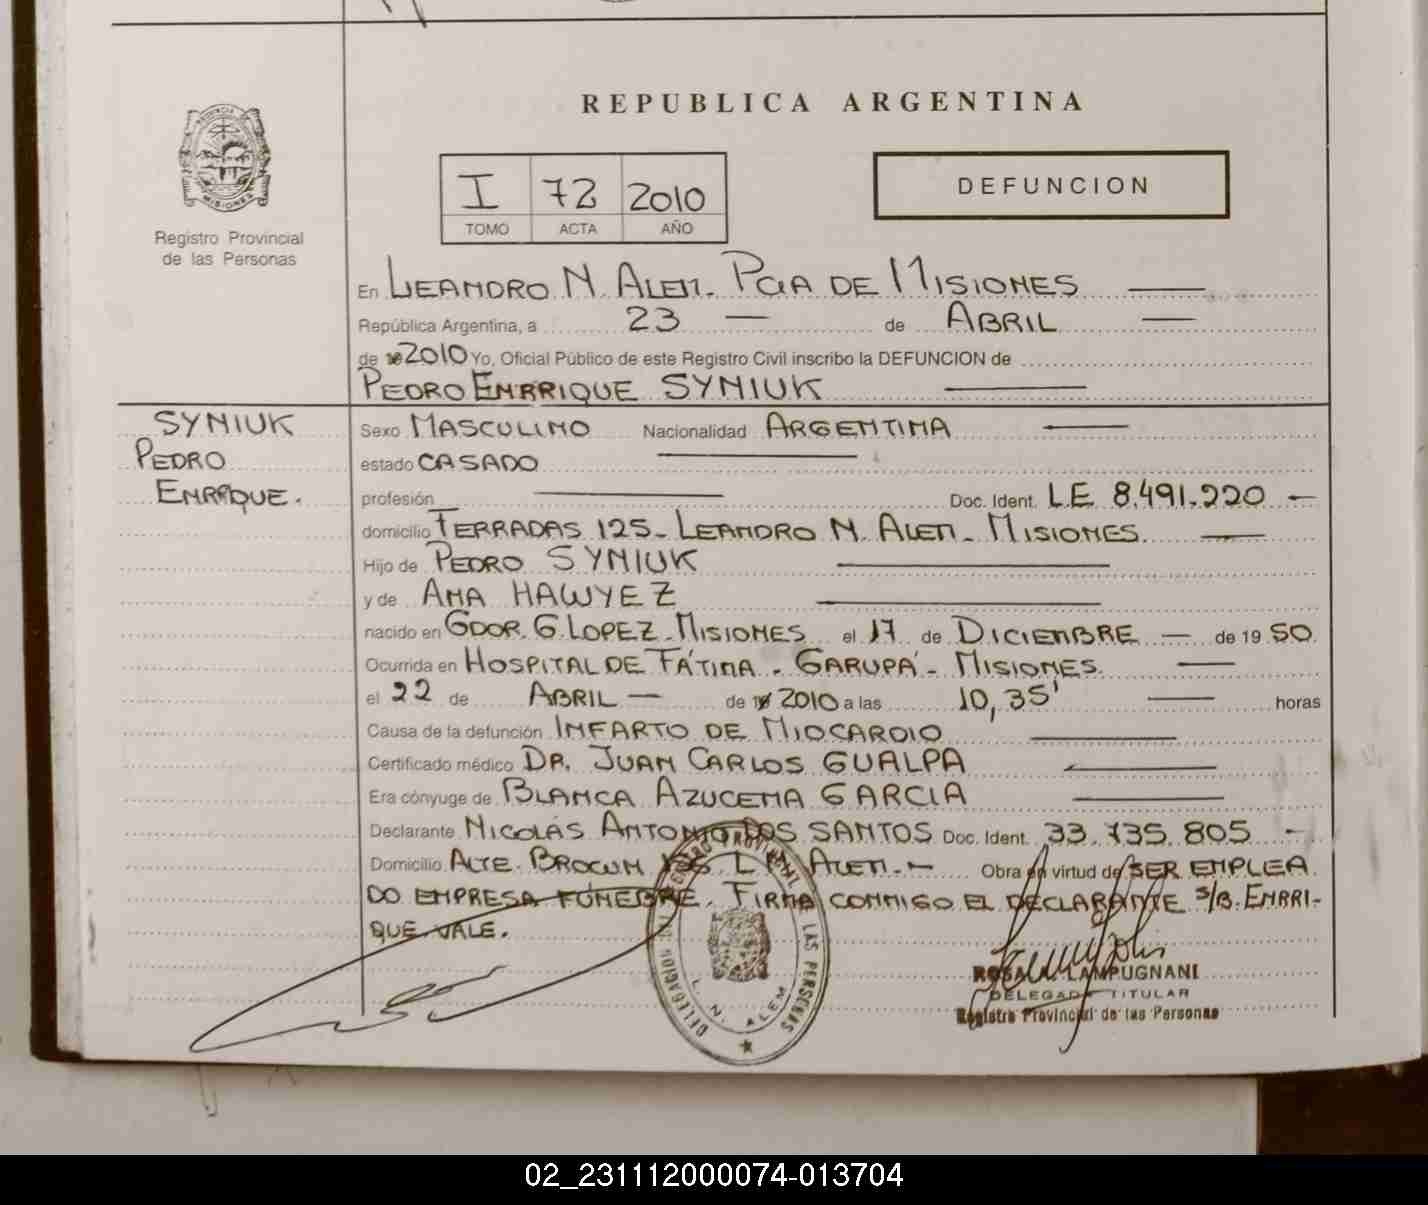 REPUBLICA ARGENTINA
PROVINCIA DE
MISIONES
Registro Provincial
de las Personas
I 72 2010
TOMO ACTA AÑO
DEFUNCION
En LEANDRO N. ALEM. PCIA DE MISIONES
República Argentina, a 23 — de ABRIL —
de 2010 Yo, Oficial Público de este Registro Civil inscribo la DEFUNCION de
PEDRO ENRRIQUE SYNIUK
SYNIUK
PEDRO
ENRRIQUE.
Sexo MASCULINO Nacionalidad ARGENTINA
estado CASADO
profesión Doc. Ident. LE 8.491.220 —
domicilio TERRADAS 125- LEANDRO N. ALEM- MISIONES.
Hijo de PEDRO SYNIUK
y de ANA HAWYEZ
nacido en GDOR. G. LOPEZ- MISIONES el 17 de DICIEMBRE — de 19 50.
Ocurrida en HOSPITAL DE FÁTIMA - GARUPÁ - MISIONES.
el 22 de ABRIL — de 2010 a las 10,35' horas
Causa de la defunción INFARTO DE MIOCARDIO
Certificado médico DR. JUAN CARLOS GUALPA
Era cónyuge de BLANCA AZUCENA GARCIA
Declarante NICOLÁS ANTONIO DOS SANTOS Doc. Ident. 33.735.805 -
Domicilio ALTE. BROWN L. N. ALEM.- Obra en virtud de SER EMPLEA
DO EMPRESA FÚNEBRE. FIRMA CONMIGO EL DECLARANTE S/B. ENRRI-
QUE. VALE.
DELEGACION REGISTRO PROVINCIAL DE LAS PERSONAS
L. N. ALEM
ROSA LAMPUGNANI
DELEGADA TITULAR
Registro Provincial de las Personas
02_231112000074-013704